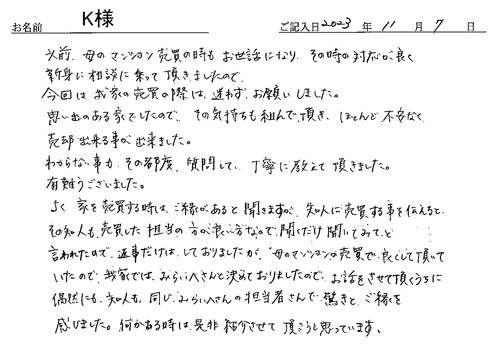 お名前 K様 ご記入日 2023年 11月 7日
以前、母のマンション売買の時もお世話になり、その時の対応が良く
親身に相談に乗って頂きましたので、
今回は我家の売買の際は、迷わずお願いしました。
思い出のある家でしたので、その気持ちも組んで頂き、ほとんど不安なく
売却出来る事が出来ました。
わからない事も、その都度、質問して、丁寧に教えて頂きました。
有難うございました。
よく家を売買する時は、ご縁があると聞きますが、知人に売買する事を伝えると、
その知人も売買した担当の方が良い方なので、聞くだけ聞いてみてと
言われたので、返事だけはしておりましたが、母のマンションの売買で良くして頂いて
いたので、我家では、みらいへさんと決めておりましたので、お話をさせて頂くうちに
偶然にも、知人も、同じみらいへさんの担当者さんで驚きと、ご縁を
感じました。何かある時は是非紹介させて頂こうと思っています。